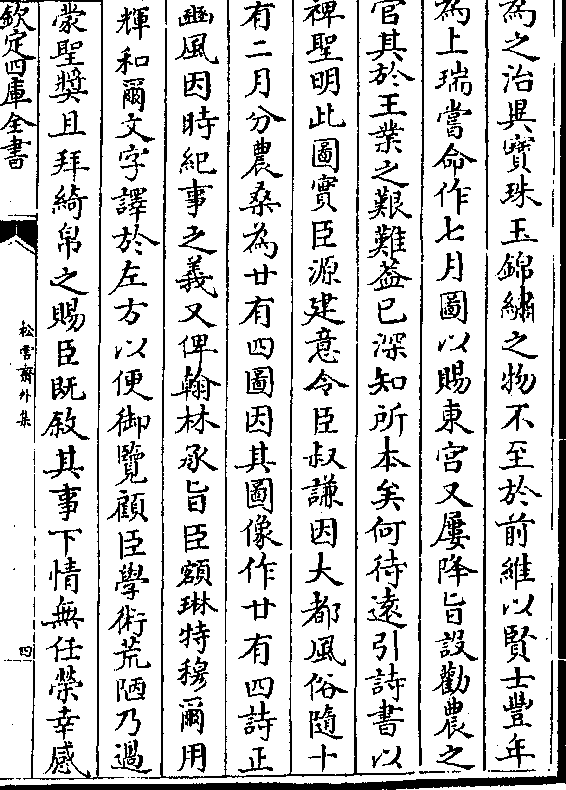 為之治異寳珠玉錦繡之物不至於前維以賢士豐年
為上瑞嘗命作七月圖以賜東宮又屢降旨設勸農之
官其於王業之艱難葢已深知所本矣何待逺引詩書以
裨聖明此圖實臣源建意令臣叔謙因大都風俗隨十
有二月分農桑為廿有四圖因其圖像作廿有四詩正
豳風因時紀事之義又俾翰林承旨臣額琳特穆爾用
輝和爾文字譯於左方以便御覽顧臣學術荒陋乃過
蒙聖奬且拜綺帛之賜臣既敘其事下情無任榮幸感
欽定四庫全書
松雪齋外集
四